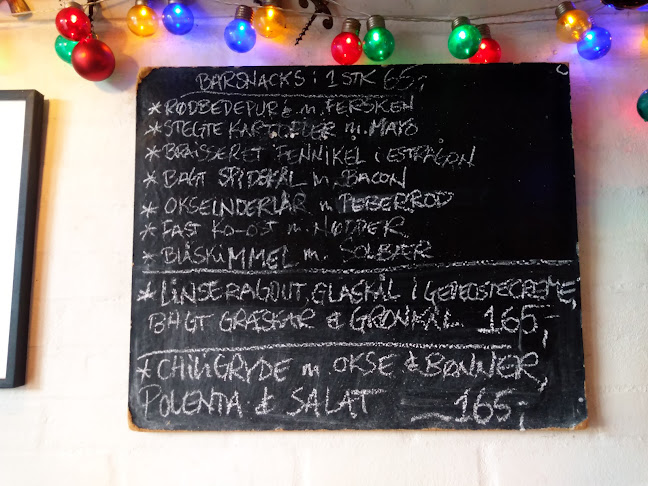 BARSNACKS: 1 STK 65,-
* RØDBEDEPURÉ m. FERSKEN
* STEGTE KARTOFLER m. MAYO
* BRAISSERET FENNIKEL I ESTRAGON
* BAGT SPIDSKÅL m. BACON
* OKSEINDERLÅR m. PEBERROD
* FAST KO-OST m. NØDDER
* BLÅSKIMMEL m. SOLBÆR
* LINSERAGOUT, GLASKÅL I GEDEOSTECREME,
BAGT GRÆSKAR & GRØNKÅL 165,-
* CHILIGRYDE m OKSE & BØNNER,
POLENTA & SALAT 165,-